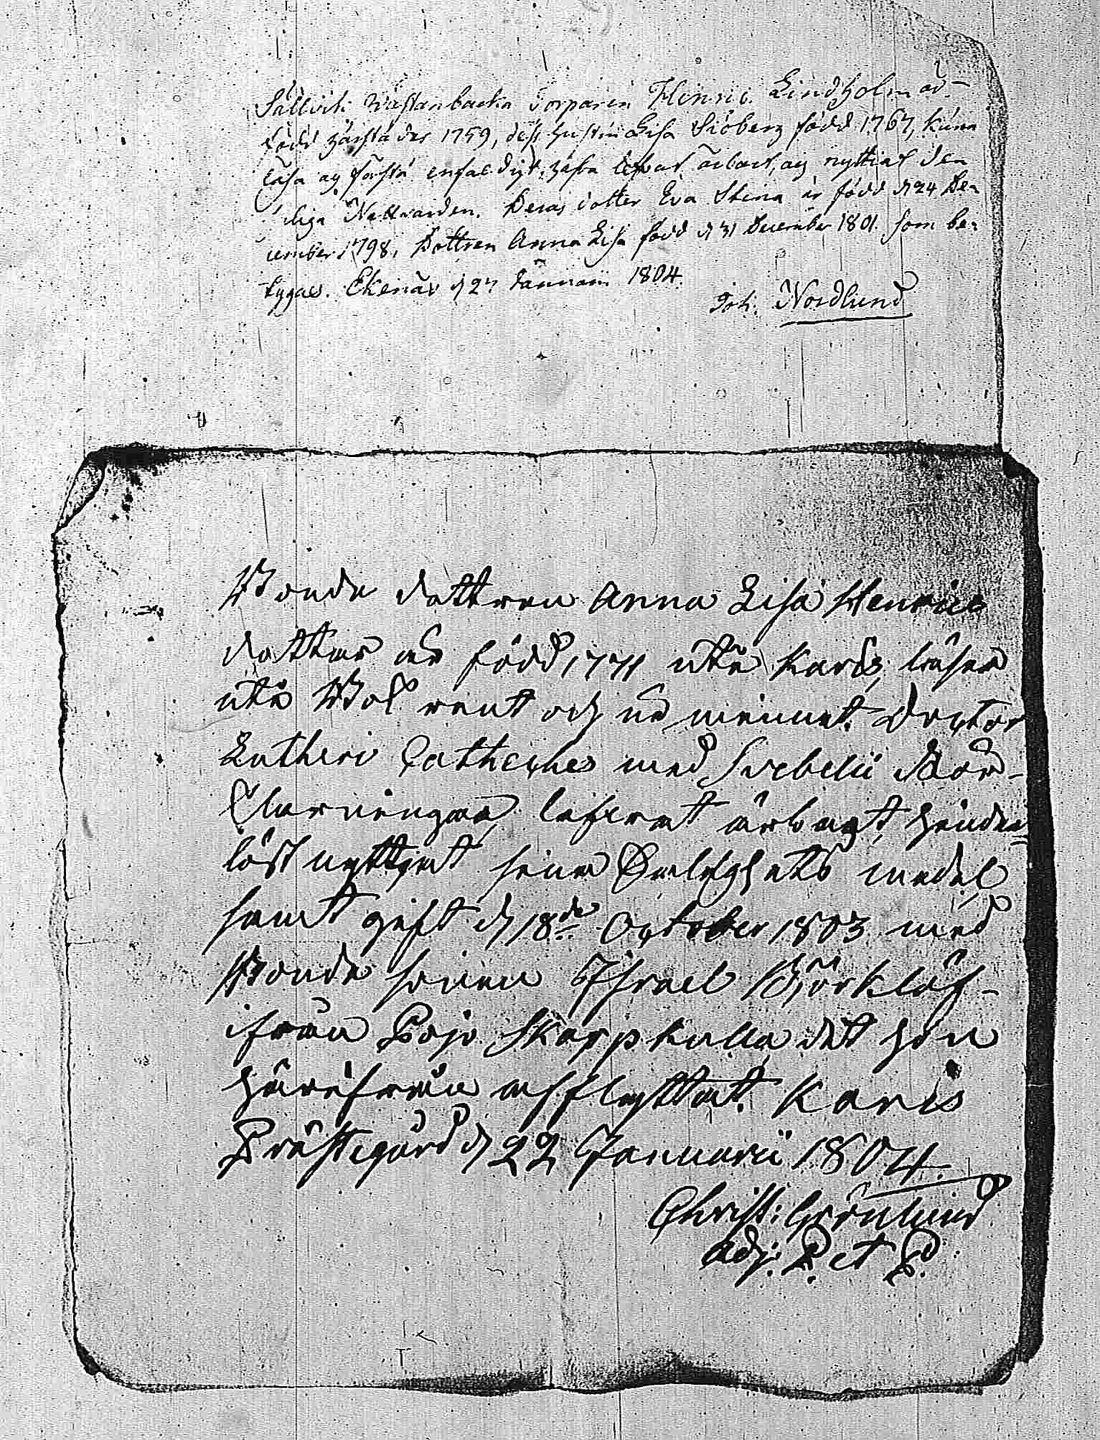 Sällvik Västanbacka Torparen Henric Lindholm är
född härstädes 1759, dess hustru Lisa Siöberg född 1767, kunna
läsa og förstå enfaldigt, hafva lefvat ärbart, og nyttiat den
Nattvarden. Deras dotter Eva Stina är född d 24 De-
cember 1798, Dottren Anna Lisa född d 31 December 1801. som be-
tygas. Ekenäs d 27 Januarii 1804.
Joh. Nordlund
Bonde dottren Anna Lisa Henrics
dotter är född 1771 uti Karis, läser
uti Bok rent och ur minnet Doctor
Lutheri Catheches med Svebelii För-
Claringar, lefvat ärbart, hinder-
löst nyttjat sina Salighets medel
samt gift d 18de October 1803 med
Bonde sonen Israel Björklöf
ifrån Pojo Skarpkulla dit hon
härifrån afflyttat. Karis
Prästegård d 22 Januarii 1804.
Christ: Grönlund
Adj. P. et P.